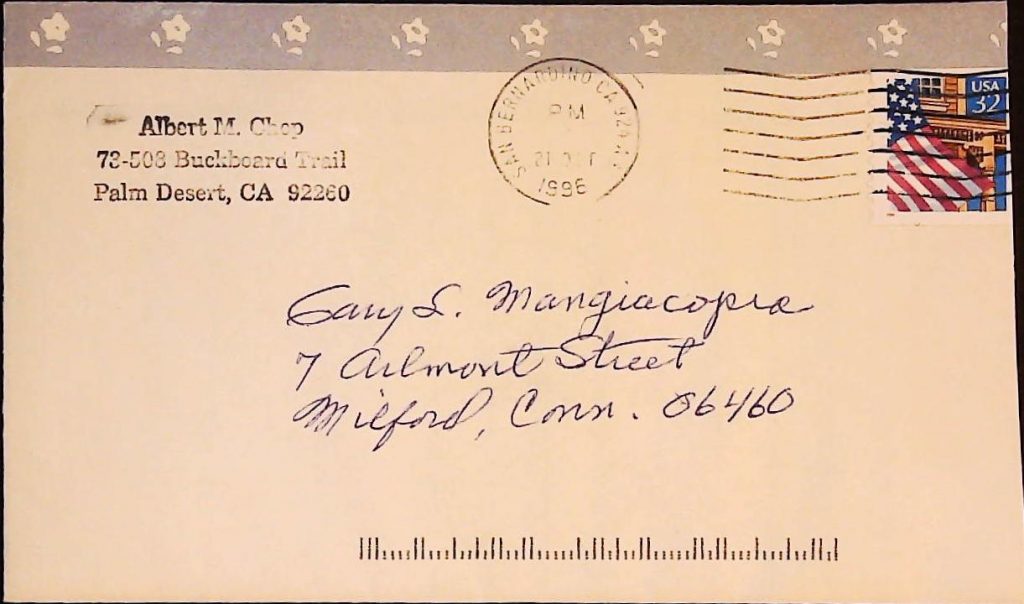 Albert M. Chop
73-503 Buckboard Trail
Palm Desert, CA 92260
SAN BERNARDINO CA
PM
21
1996
USA
32
Gary S. Mangiacopra
7 Arlmont Street
Milford, Conn. 06460